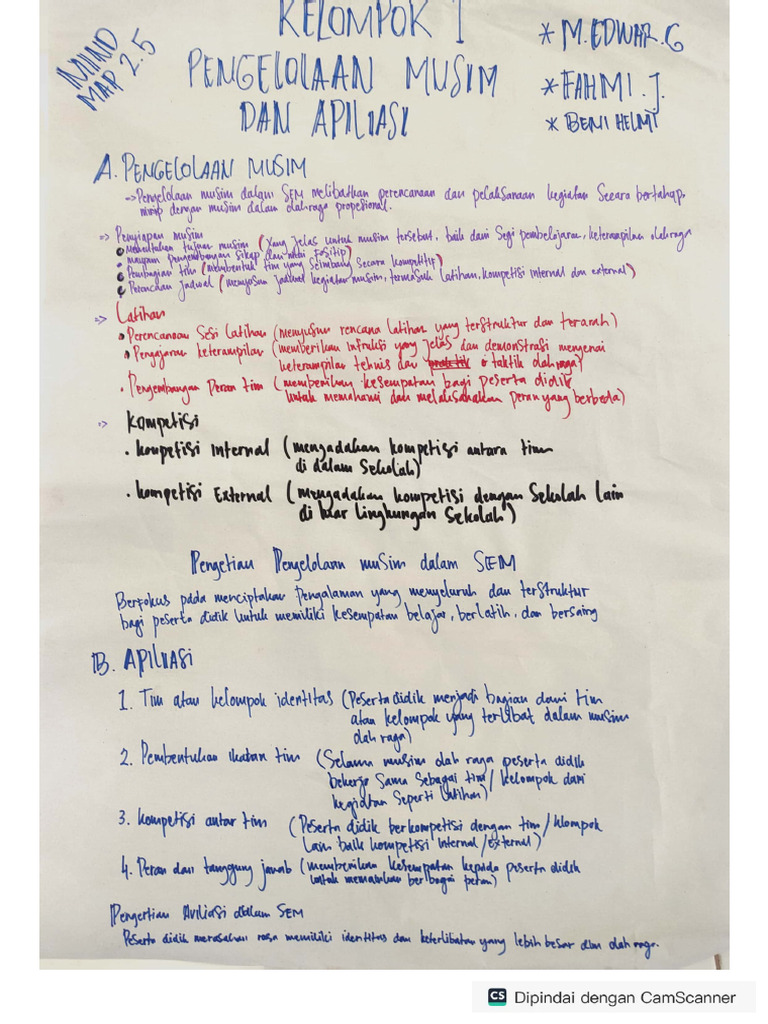 MIND
MAP 2.5
KELOMPOK 1
PENGELOLAAN MUSIM
DAN APILIASI
* M.EDWAR.G
* FAHMI.J.
* BENI HELMI
A. PENGELOLAAN MUSIM
=> Pengelolaan musim dalam SEM melibatkan perencanaan dan pelaksanaan kegiatan Secara bertahap,
mirip dengan musim dalam olahraga propesional.
=> Penyiapan musim
• Menentukan tujuan musim (Yang jelas untuk musim tersebut, baik dari Segi pembelajaran, keterampilan olahraga
maupun pengembangan sikap dan nilai Positip)
• Pembagian tim (membentuk tim yang Seimbang Secara kompetitif)
• Perencanaan jadwal (menyusun jadwal kegiatan musim, termasuk latihan, kompetisi internal dan external)
=> Latihan
• Perencanaan Sesi Latihan (menyusun rencana latihan yang terstruktur dan terarah)
• Pengajaran keterampilan (memberikan Intruksi yang jelas dan demonstrasi mengenai
keterampilan tehnis dan taktik olahraga)
• Pengembangan Peran tim (memberikan kesempatan bagi peserta didik
untuk memahami dan melaksanakan peran yang berbeda)
=> Kompetisi
• kompetisi Internal (mengadakan kompetisi antara tim
di dalam Sekolah)
• kompetisi External (mengadakan kompetisi dengan Sekolah lain
di luar lingkungan Sekolah)
Pengetian Pengelolaan musim dalam SEM
Berfokus pada menciptakan Pengalaman yang menyeluruh dan terstruktur
bagi peserta didik Untuk memiliki kesempatan belajar, berlatih, dan bersaing
B. APILIASI
1. Tim atau kelompok identitas (Peserta didik menjadi bagian dari tim
atau kelompok yang terlibat dalam musim
olah raga)
2. Pembentukan ikatan tim (Selama musim olah raga peserta didik
bekerja Sama Sebagai tim/kelompok dari
kegiatan Seperti latihan)
3. kompetisi antar tim (Peserta didik berkompetisi dengan tim/klompok
Lain baik kompetisi Internal/External)
4. Peran dan tanggung jawab (memberikan kesempatan kepada peserta didik
untuk memainkan berbagai peran)
Pengertian Aviliasi dalam SEM
Peserta didik merasakan rasa memiliki identitas dan keterlibatan yang lebih besar dlm olah raga.
CS Dipindai dengan CamScanner